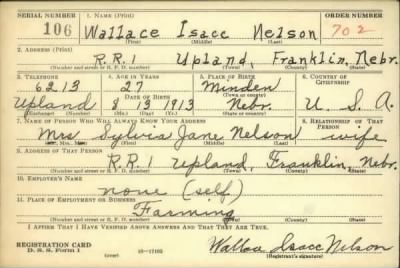 SERIAL NUMBER 1. NAME (Print) ORDER NUMBER
106 Wallace Isacc Nelson 702
(First) (Middle) (Last)
2. ADDRESS (Print)
R.R.1 Upland, Franklin, Nebr.
(Number and street or R. F. D. number) (Town) (County) (State)
3. TELEPHONE 4. AGE IN YEARS 5. PLACE OF BIRTH 6. COUNTRY OF CITIZENSHIP
6213 27 Minden
DATE OF BIRTH (Town or county)
Upland 8 13 1913 Nebr. U. S. A.
(Exchange) (Number) (Mo.) (Day) (Yr.) (State or country)
7. NAME OF PERSON WHO WILL ALWAYS KNOW YOUR ADDRESS 8. RELATIONSHIP OF THAT PERSON
Mrs Sylvis Jane Nelson wife
(Mr., Mrs., Miss) (First) (Middle) (Last)
9. ADDRESS OF THAT PERSON
R.R.1 Upland, Franklin, Nebr.
(Number and street or R. F. D. number) (Town) (County) (State)
10. EMPLOYER'S NAME
none (self)
11. PLACE OF EMPLOYMENT OR BUSINESS
Farming
(Number and street or R. F. D. number) (Town) (County) (State)
I AFFIRM THAT I HAVE VERIFIED ABOVE ANSWERS AND THAT THEY ARE TRUE.
REGISTRATION CARD
D. S. S. Form 1 (over) Wallace Isacc Nelson
(Registrant's signature)